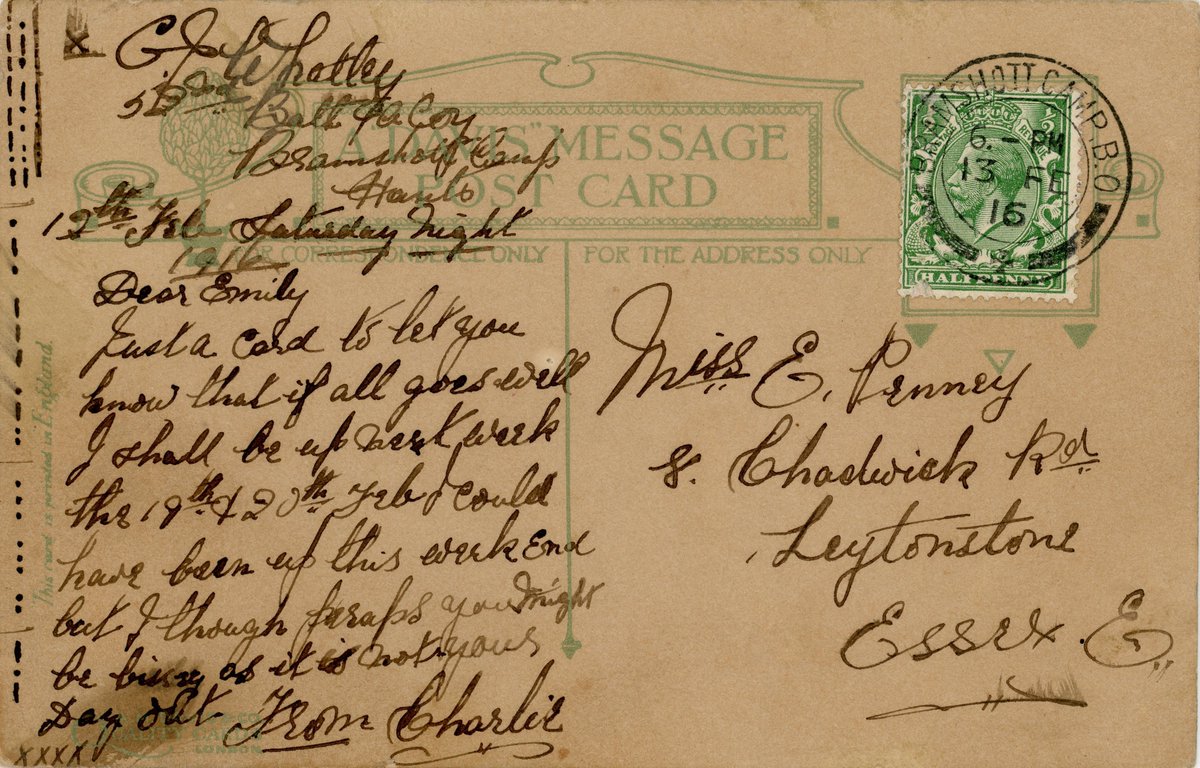 X
C J Whatley
52nd
Batt A Coy
Bramshott Camp
Hants
12th Feb Saturday Night
1916
Dear Emily
Just a card to let you
know that if all goes well
I shall be up next week
the 19th & 20th Feb I could
have been up this week End
but I though peraps you Might
be busy as it is not yours
Day out From Charlie
XXXX
"DAVIS" MESSAGE
POST CARD
FOR CORRESPONDENCE ONLY
FOR THE ADDRESS ONLY
This card is printed in England.
LONDON
BRAMSHOTT CAMP. B.O
6. - PM
13 FE
16
HALFPENNY
Miss E. Penney
8. Chadwick Rd
Leytonstone
Essex. E.